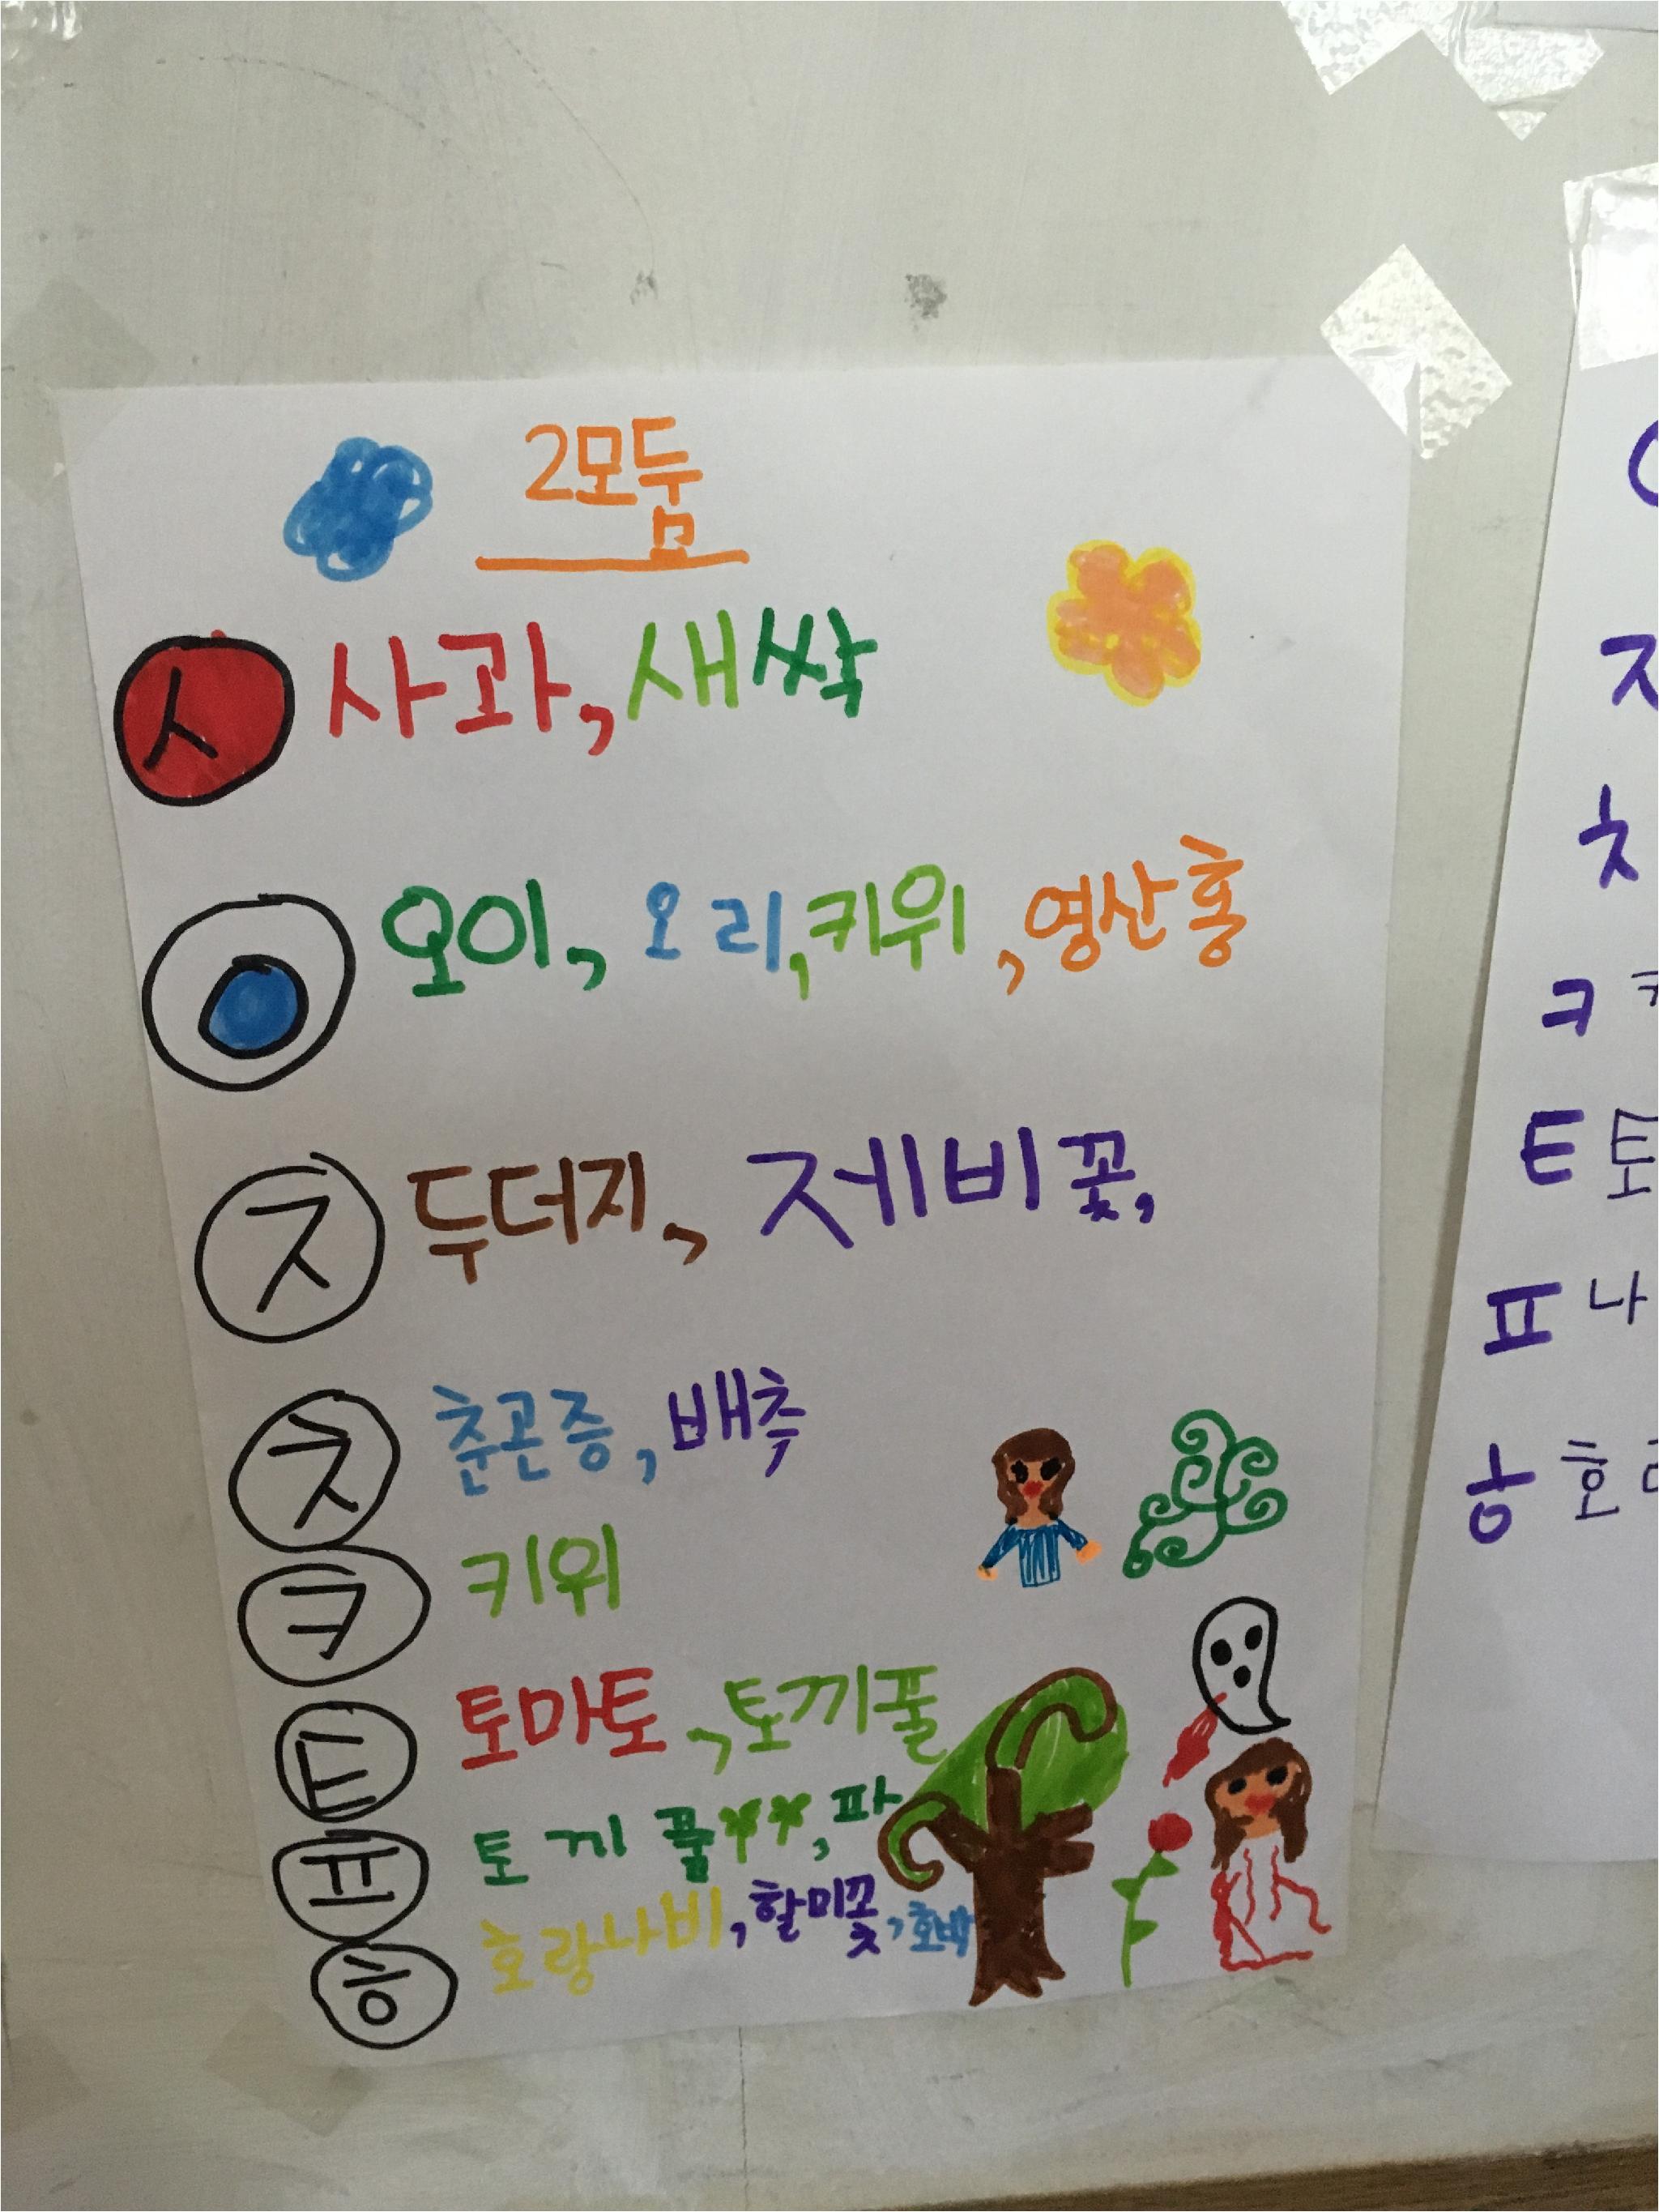 2모둠
ㅅ 사과, 새싹
ㅇ 오이, 오리, 키위, 영산홍
ㅈ 두더지, 제비꽃,
ㅊ 춘곤증, 배추
ㅋ 키위
ㅌ 토마토, 토끼풀
ㅍ 토끼풀, 파
ㅎ 호랑나비, 할미꽃, 호박
ㅇ
ㅈ
ㅊ
ㅋ
ㅌ 토
ㅍ 나
ㅎ 호